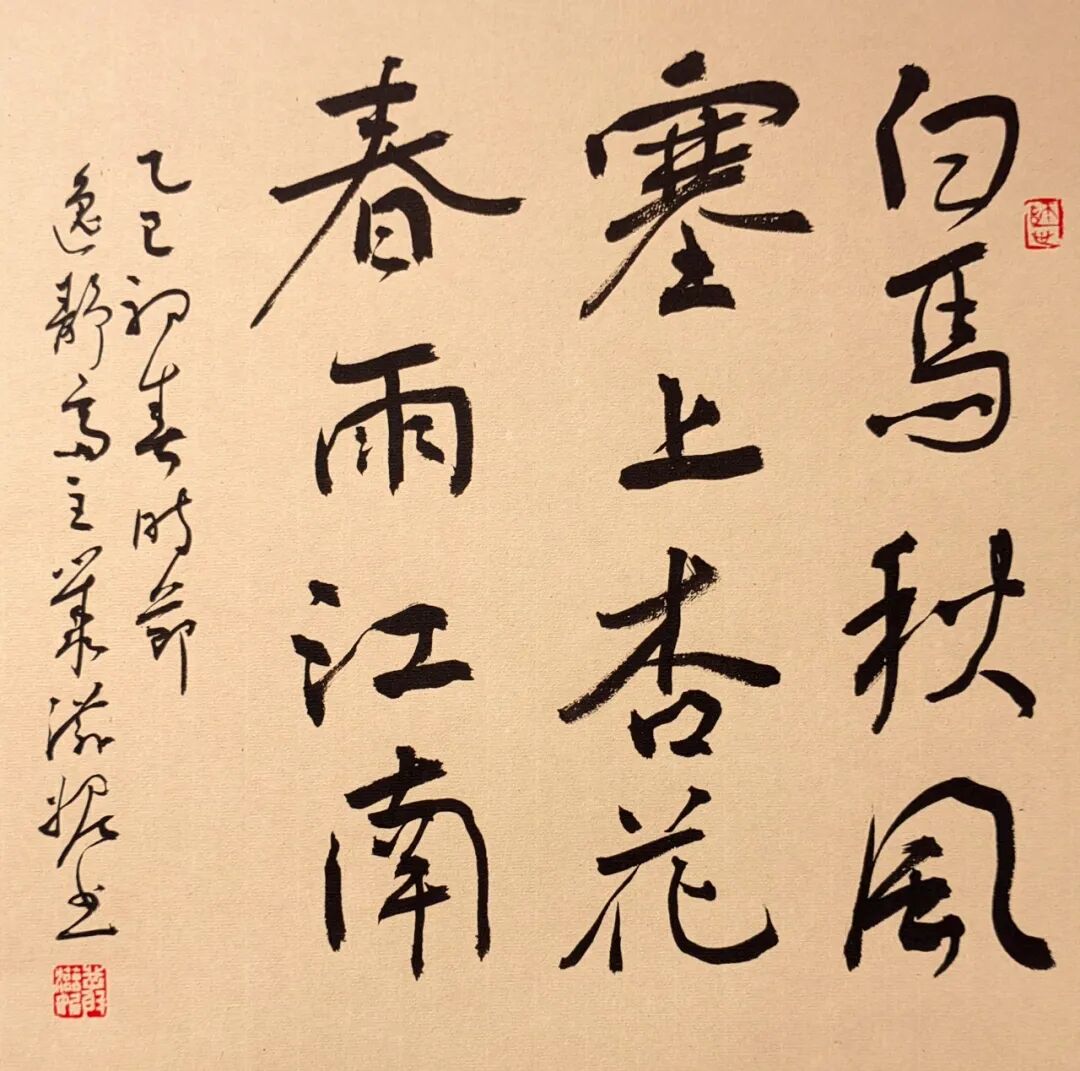 白馬秋風
塞上杏花
春雨江南
乙巳初春時節
逸靜齋主叢滋書